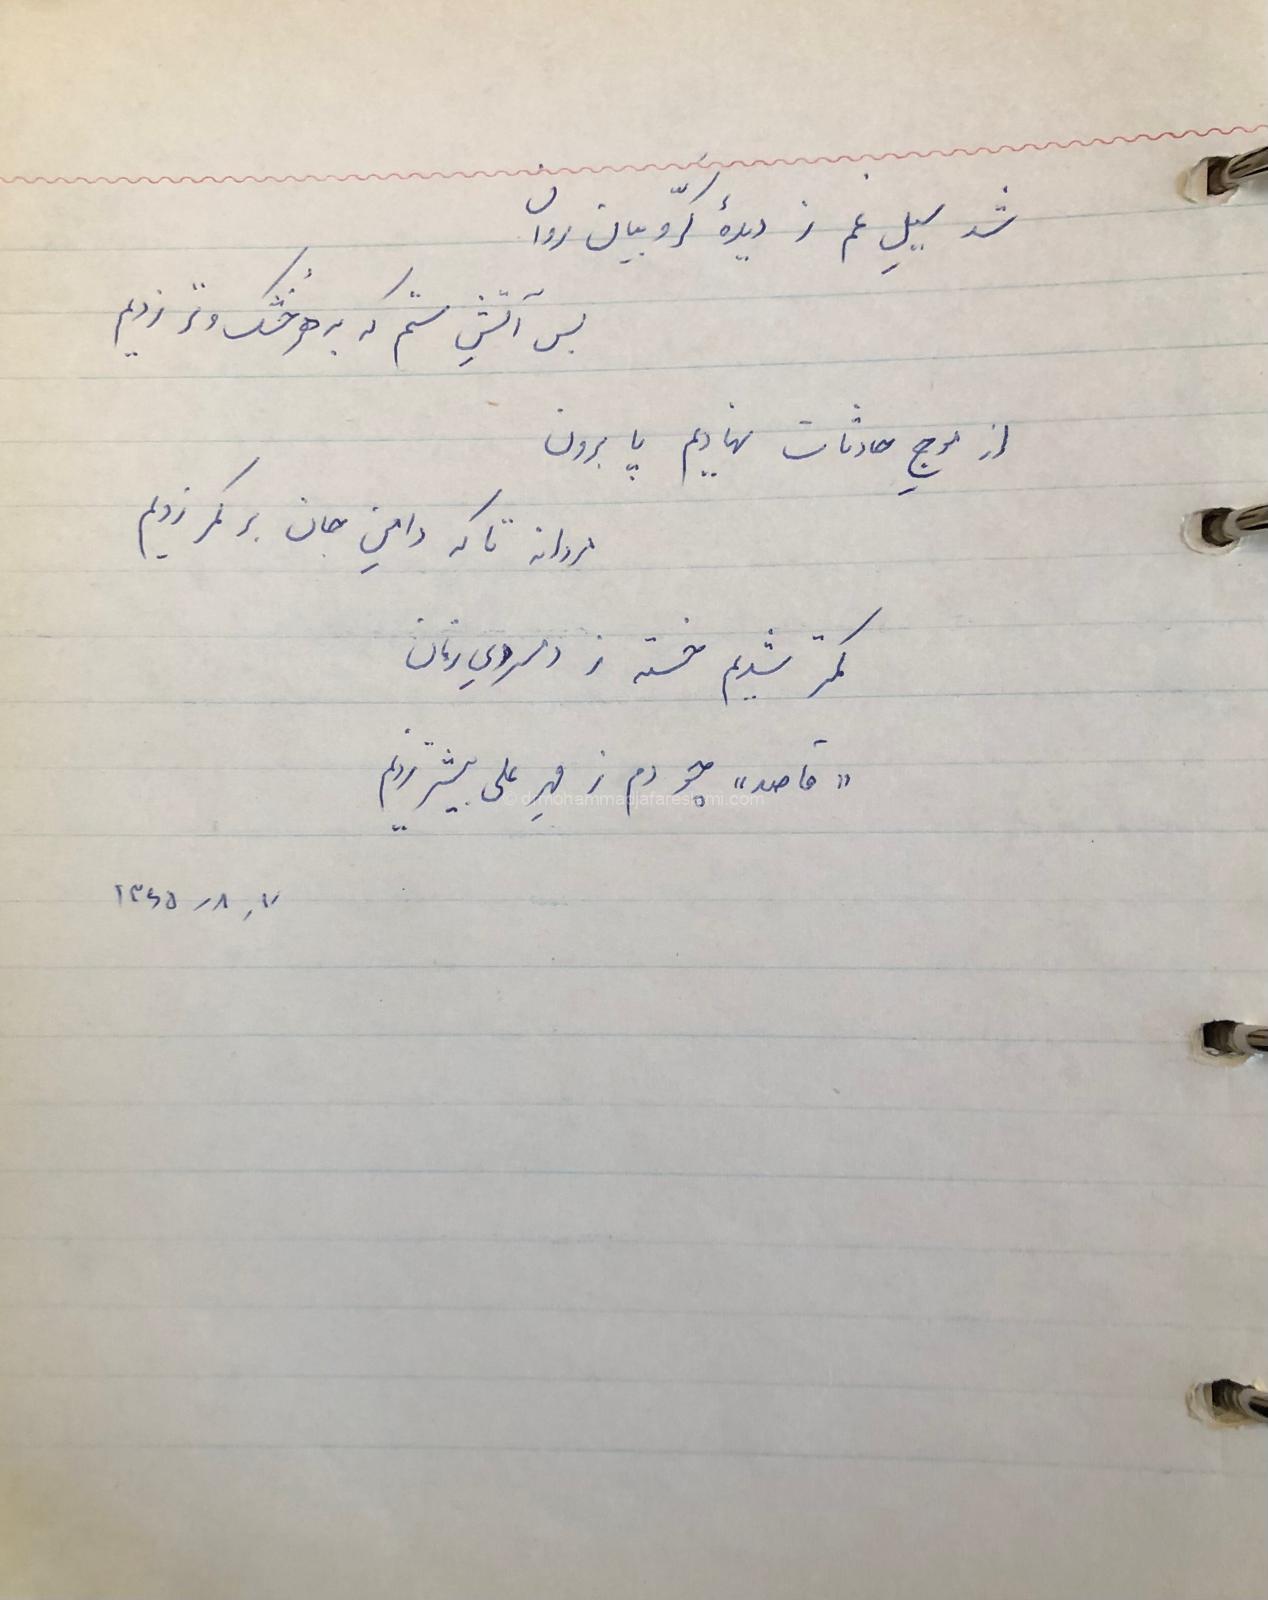 شد سیلِ غم ز دیدهٔ کرّوبیان روان
بس آتشِ ستم که به هر خُشک و تَر زدیم
از موجِ حادثات نهادیم پا برون
مردانه تا که دامنِ جان بر کمر زدیم
کمتر شدیم خسته ز دمسردیِ زمان
«قاصد» چو دم ز مهرِ علی بیشتر زدیم
۱۳۶۵
© drmohammadjafareslami.com